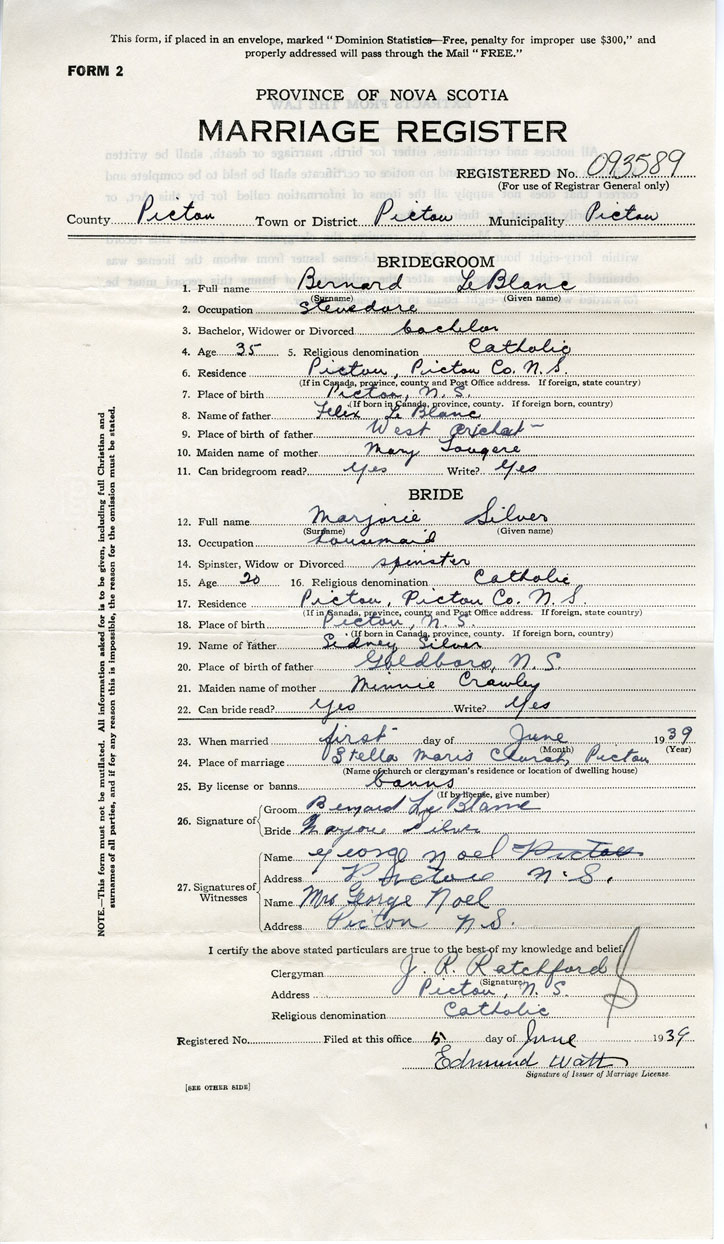 This form, if placed in an envelope, marked "Dominion Statistics—Free, penalty for improper use $300," and
properly addressed will pass through the Mail "FREE."
FORM 2
PROVINCE OF NOVA SCOTIA
MARRIAGE REGISTER
REGISTERED No. 093589
(For use of Registrar General only)
County Pictou Town or District Pictou Municipality Pictou
BRIDEGROOM
1. Full name Bernard LeBlanc
(Surname) (Given name)
2. Occupation Stevedore
3. Bachelor, Widower or Divorced bachelor
4. Age 35 5. Religious denomination Catholic
6. Residence Pictou, Pictou Co. N.S.
(If in Canada, province, county and Post Office address. If foreign, state country)
7. Place of birth Pictou, N.S.
(If born in Canada, province, county. If foreign born, country)
8. Name of father Felix Le Blanc
9. Place of birth of father West Arichat
10. Maiden name of mother Mary Fougere
11. Can bridegroom read? Yes Write? Yes
BRIDE
12. Full name Marjorie Silver
(Surname) (Given name)
13. Occupation housemaid
14. Spinster, Widow or Divorced spinster
15. Age 20 16. Religious denomination Catholic
17. Residence Pictou, Pictou Co. N.S.
(If in Canada, province, county and Post Office address. If foreign, state country)
18. Place of birth Pictou, N.S.
(If born in Canada, province, county. If foreign born, country)
19. Name of father Sidney Silver
20. Place of birth of father Goldboro, N.S.
21. Maiden name of mother Minnie Crawley
22. Can bride read? Yes Write? Yes
23. When married first day of June 1939
(Month) (Year)
24. Place of marriage Stella Maris Church, Pictou
(Name of church or clergyman's residence or location of dwelling house)
25. By license or banns banns
(If by license, give number)
26. Signature of Groom Bernard Le Blanc
Bride Marjorie Silver
27. Signatures of Witnesses
Name George Noel Pictou
Address Pictou N.S.
Name Mrs George Noel
Address Pictou N.S.
I certify the above stated particulars are true to the best of my knowledge and belief
Clergyman J. R. Ratchford
(Signature)
Address Pictou, N.S.
Religious denomination Catholic
Registered No. Filed at this office 5 day of June 1939
Edmund Watt
Signature of Issuer of Marriage License.
[SEE OTHER SIDE]
NOTE.—This form must not be mutilated. All information asked for is to be given, including full Christian and
surnames of all parties, and if for any reason this is impossible, the reason for the omission must be stated.